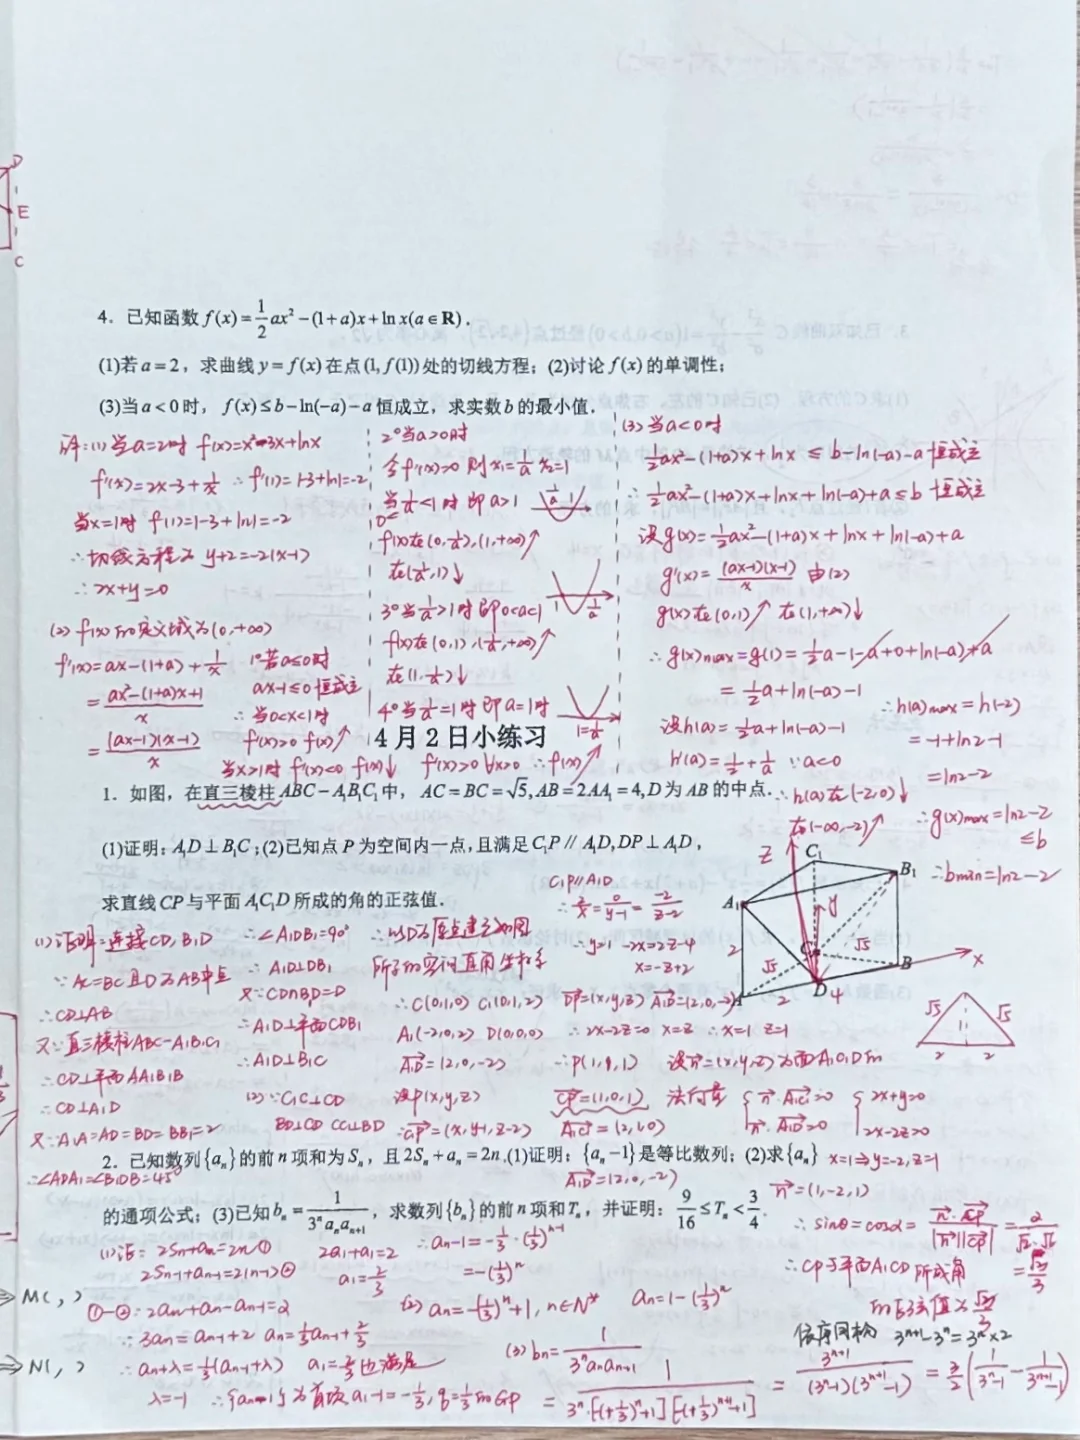 D
E
C
4．已知函数 f(x)=1/2ax²−(1+a)x+ln x(a∈R)．
(1)若a=2，求曲线y=f(x)在点(1,f(1))处的切线方程；(2)讨论f(x)的单调性；
(3)当a<0时，f(x)≤b−ln(−a)−a恒成立，求实数b的最小值．
(1)当a=2时 f(x)=x²-3x+lnx
当x=1时 f(1)=1-3+ln1=-2
∴切线方程为 y+2=-2(x-1)
∴2x+y=0
(2) f(x)的定义域为(0,+∞)
f'(x)=ax-(1+a)+1/x
=(ax²-(1+a)x+1)/x
=(ax-1)(x-1)/x
1°若a≤0时
ax-1≤0恒成立
∴当0<x<1时
f'(x)>0 f(x)↗
当x>1时 f'(x)<0 f(x)↓
2°当a>0时
令f'(x)=0 则x₁=1/a x₂=1
当1/a<1时 即a>1
f(x)在(0,1/a),(1,+∞)↗
在(1/a,1)↓
3°当1/a>1时 即0<a<1
f(x)在(0,1),(1/a,+∞)↗
在(1,1/a)↓
4°当1/a=1时 即a=1时
f'(x)>0 ∀x>0 ∴f(x)↗
1/a 1
1 1/a
1=1/a
(3)当a<0时
1/2ax²-(1+a)x+lnx≤b-ln(-a)-a恒成立
∴1/2ax²-(1+a)x+lnx+ln(-a)+a≤b 恒成立
设g(x)=1/2ax²-(1+a)x+lnx+ln(-a)+a
g'(x)=(ax-1)(x-1)/x 由(2)
g(x)在(0,1)↗ 在(1,+∞)↓
∴g(x)max=g(1)=1/2a-1-a+0+ln(-a)+a
=1/2a+ln(-a)-1
设h(a)=1/2a+ln(-a)-1
h'(a)=1/2+1/a ∵a<0
∴h(a)在(-2,0)↓
在(-∞,-2)↗
∴h(a)max=h(-2)
=-1+ln2-1
=ln2-2
∴g(x)max=ln2-2
≤b
∴bmin=ln2-2
4月2日小练习
1．如图，在直三棱柱ABC−A₁B₁C₁中，AC=BC=√5,AB=2AA₁=4,D为AB的中点．
(1)证明：A₁D⊥B₁C；(2)已知点P为空间内一点，且满足C₁P∥A₁D,DP⊥A₁D，
求直线CP与平面A₁C₁D所成的角的正弦值．
(1)证明：连接CD,B₁D
∵AC=BC且D为AB中点
∴CD⊥AB
又∵直三棱柱ABC-A₁B₁C₁
∴CD⊥平面AA₁B₁B
∴CD⊥A₁D
又∵A₁A=AD=BD=BB₁=2
∴∠ADA₁=∠B₁DB=45°
∴∠A₁DB₁=90°
∴A₁D⊥DB₁
又∵CD∩B₁D=D
∴A₁D⊥平面CDB₁
∴A₁D⊥B₁C
(2)∵C₁C⊥CD
BD⊥CD CC₁⊥BD
∴以D为原点建立如图
所示的空间直角坐标系
∴C(0,1,0) C₁(0,1,2)
A₁(-2,0,2) D(0,0,0)
A₁D=(2,0,-2)
设P(x,y,z)
C₁P∥A₁D
∴y=1 -2x=2z-4
x=-z+2
DP=(x,y,z) A₁D=(2,0,-2)
∴2x-2z=0 x=z ∴x=1 z=1
∴P(1,1,1) 设n=(x,y,z)为面A₁C₁D的
CP=(1,0,1) 法向量
A₁C₁=(2,1,0)
A₁D=(2,0,-2)
n·A₁C₁=0
n·A₁D=0
2x+y=0
2x-2z=0
x=1⇒y=-2,z=1
n=(1,-2,1)
∴sinθ=cosα=n·CP/|n||CP|=2/√2·√6
=√3/3
∴CP与平面A₁C₁D所成角
的正弦值为√3/3
Z
C₁
B₁
A₁
y
C
√5
B
x
A
2
√5
2
D
4
√5
√5
2
2
2．已知数列{aₙ}的前n项和为Sₙ，且2Sₙ+aₙ=2n.(1)证明：{aₙ−1}是等比数列；(2)求{aₙ}
的通项公式；(3)已知bₙ=1/(3ⁿaₙaₙ₊₁)，求数列{bₙ}的前n项和Tₙ，并证明：9/16≤Tₙ<3/4．
(1)证：2Sn+an=2n①
2Sn-1+an-1=2(n-1)②
①-②：2an+an-an-1=2
∴3an=an-1+2 an=1/3an-1+2/3
∴an+λ=1/3(an-1+λ)
λ=-1
2a₁+a₁=2
a₁=2/3
a₁=2/3也满足
∴{an-1}为首项a₁-1=-1/3,q=1/3的GP
∴an-1=-1/3·(1/3)ⁿ⁻¹
=-(1/3)ⁿ
(2) an=-(1/3)ⁿ+1,n∈N*
an=1-(1/3)ⁿ
(3) bn=1/(3ⁿanan+1)
=1/(3ⁿ·[-(1/3)ⁿ+1][-(1/3)ⁿ⁺¹+1])
=3ⁿ⁺¹/((3ⁿ-1)(3ⁿ⁺¹-1))
=3/2(1/(3ⁿ-1)-1/(3ⁿ⁺¹-1))
3ⁿ⁺¹-3ⁿ=3ⁿ×2
M( , )
N( , )